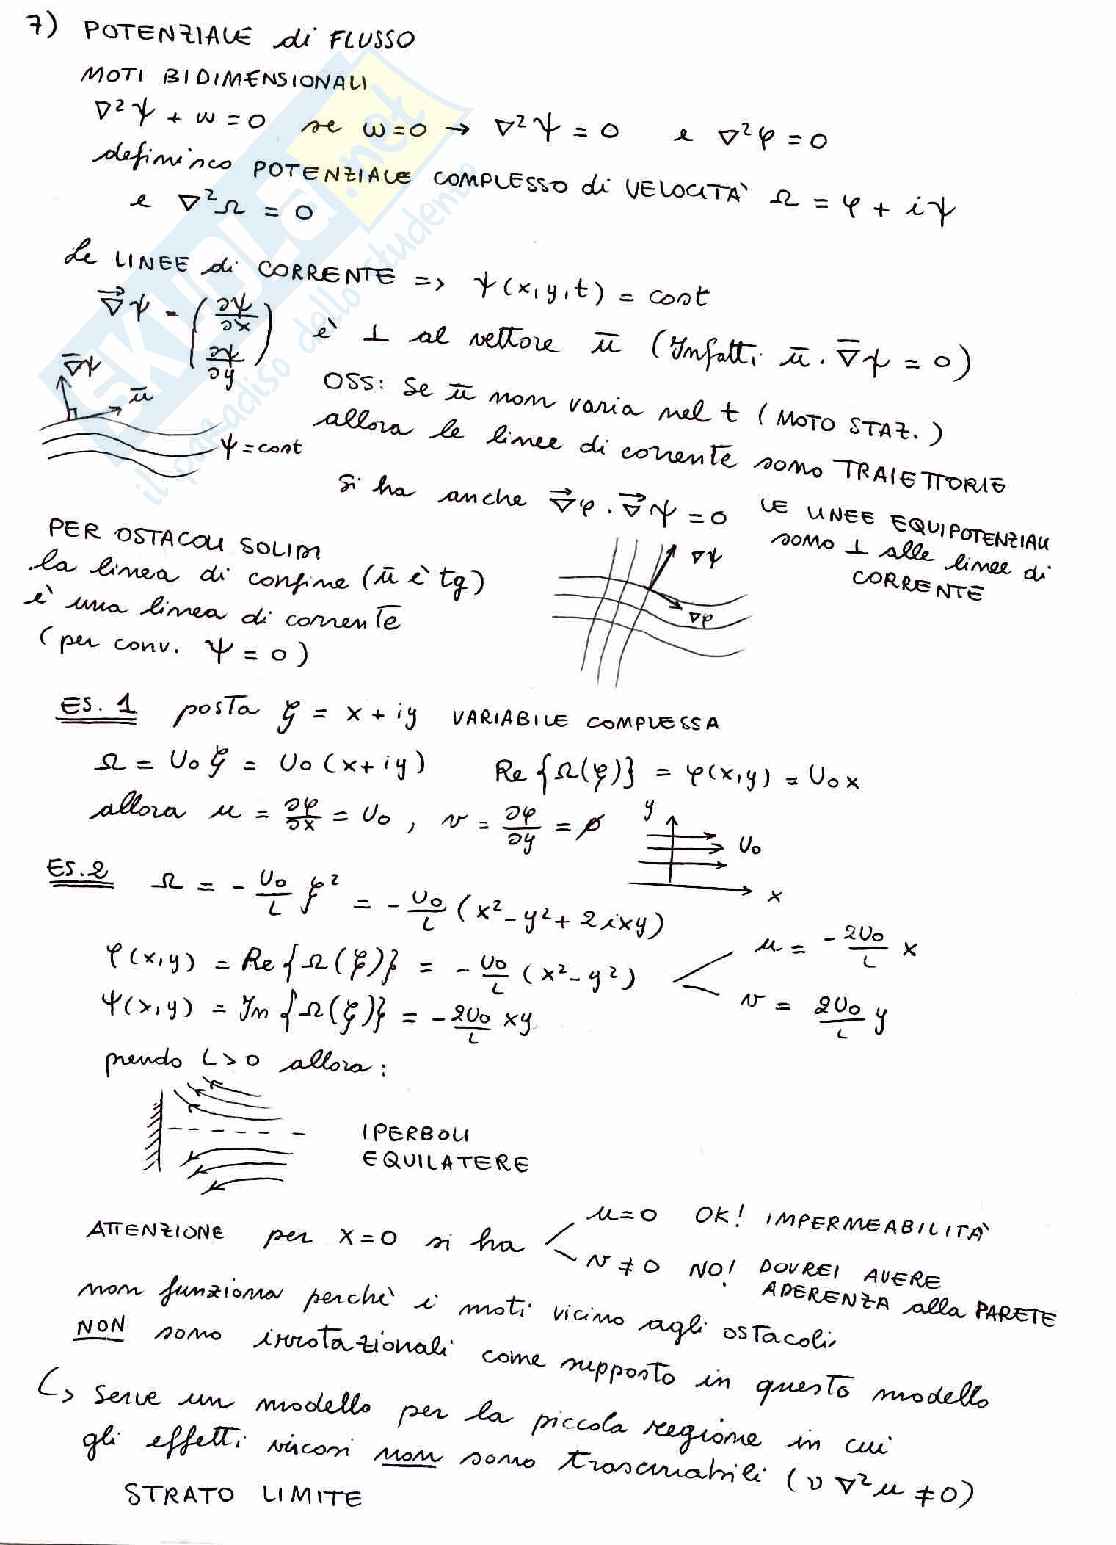 7) POTENZIALE di FLUSSO
MOTI BIDIMENSIONALI
∇²ψ + ω = 0 se ω = 0 → ∇²ψ = 0 e ∇²φ = 0
definisco POTENZIALE COMPLESSO di VELOCITÀ Ω = φ + iψ
e ∇²Ω = 0
Le LINEE di CORRENTE => ψ(x,y,t) = cost
∇ψ = (∂ψ/∂x ∂ψ/∂y) è ⊥ al vettore ū (Infatti ū · ∇ψ = 0)
∇ψ
ū
ψ = cost
OSS: Se ū non varia nel t (MOTO STAZ.)
allora le linee di corrente sono TRAIETTORIE
Si ha anche ∇φ · ∇ψ = 0 LE LINEE EQUIPOTENZIALI
sono ⊥ alle linee di
CORRENTE
∇ψ
∇φ
PER OSTACOLI SOLIDI
la linea di confine (ū è tg)
è una linea di corrente
(per conv. ψ = 0)
ES. 1 posta ζ = x + iy VARIABILE COMPLESSA
Ω = U₀ζ = U₀(x + iy) Re{Ω(ζ)} = φ(x,y) = U₀x
allora u = ∂φ/∂x = U₀, v = ∂φ/∂y = 0
y
U₀
x
ES. 2 Ω = - U₀/L ζ² = - U₀/L (x² - y² + 2ixy)
φ(x,y) = Re{Ω(ζ)} = - U₀/L (x² - y²)
u = -2U₀/L x
v = 2U₀/L y
ψ(x,y) = Im{Ω(ζ)} = - 2U₀/L xy
prendo L > 0 allora:
IPERBOLI
EQUILATERE
ATTENZIONE per x = 0 si ha
u = 0 OK! IMPERMEABILITÀ
v ≠ 0 NO! DOVREI AVERE
ADERENZA alla PARETE
non funziona perchè i moti vicino agli ostacoli
NON sono irrotazionali come supposto in questo modello
↳ Serve un modello per la piccola regione in cui
gli effetti viscosi non sono trascurabili (ν ∇²u ≠ 0)
STRATO LIMITE
SKUOLA.net
il paradiso dello studente